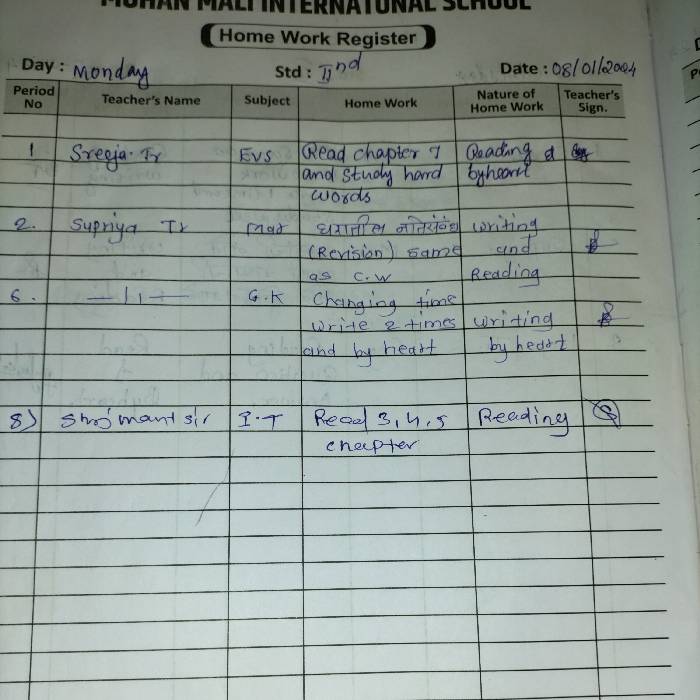 MOHAN MALI INTERNATONAL SCHOOL
Home Work Register
Day : Monday Std : IInd Date : 08/01/2024
Period No Teacher's Name Subject Home Work Nature of Home Work Teacher's Sign.
1 Sreeja Tr EVS Read chapter 7 Reading &
and Study hard byheart
words
2. Supriya Tr Mar घरातील नातेसंबंध writing
(Revision) same and
as C.W Reading
6. —11— G.K Changing time
write 2 times writing
and by heart by heart
8) Shrimant sir I.T Read 3, 4, 5 Reading
chapter